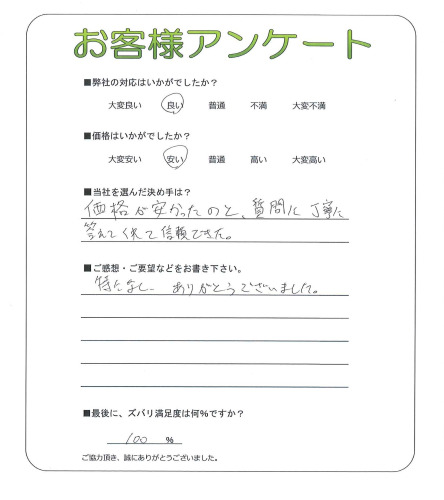 お客様アンケート
■弊社の対応はいかがでしたか?
大変良い 良い 普通 不満 大変不満
■価格はいかがでしたか?
大変安い 安い 普通 高い 大変高い
■当社を選んだ決め手は?
価格が安かったのと、質問に丁寧に
答えてくれて信頼できた。
■ご感想・ご要望などをお書き下さい。
特になし ありがとうございました。
■最後に、ズバリ満足度は何%ですか?
100 %
ご協力頂き、誠にありがとうございました。